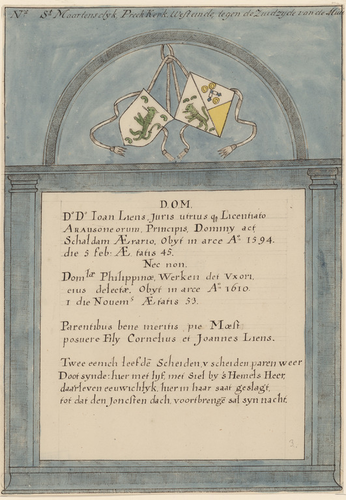 Nº St Maartensdyk Preek Kerk. Westeinde tegen de Zuidzyde van de Muur
D.O.M.
Dº Dº Ioan Liens, Juris utrius qȝ Licentiato
Arausoneorum, Principis, Dominy act
Schaldam Ærario, Obyt in arce Aº 1594.
die 5 feb: Æ tatis 45.
Nec non.
Domlæ Philippinæ, Werken dei Vxori,
eius delectæ, Obyt in arce Aº 1610
1 die Novems Ætatis 53.
Parentibus bene meritis, pie Mœst:
posuere Filÿ Cornelius et Joannes Liens.
Twee eenich leefdē Scheiden, v scheiden paren weer
Doot synde: hier met lyf, met Siel by 's Hemels Heer,
daar leven eeuwichlyk, hier in haar saat geslagt,
tot dat den Joncsten dach, voortbrengē sal syn nacht.